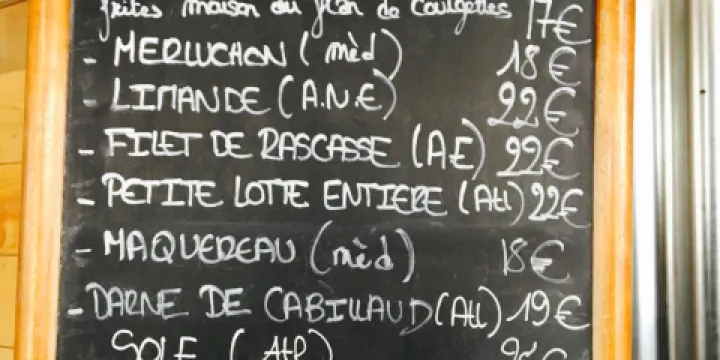 frites maison ou flan de Courgettes 17€
- MERLUCHON (mèd) 18€
- LIMANDE (A.N.E) 22€
- FILET DE RASCASSE (AE) 22€
- PETITE LOTTE ENTIERE (Atl) 22€
- MAQUEREAU (mèd) 18€
- DARNE DE CABILLAUD (Atl) 19€
SOLE (Atl)